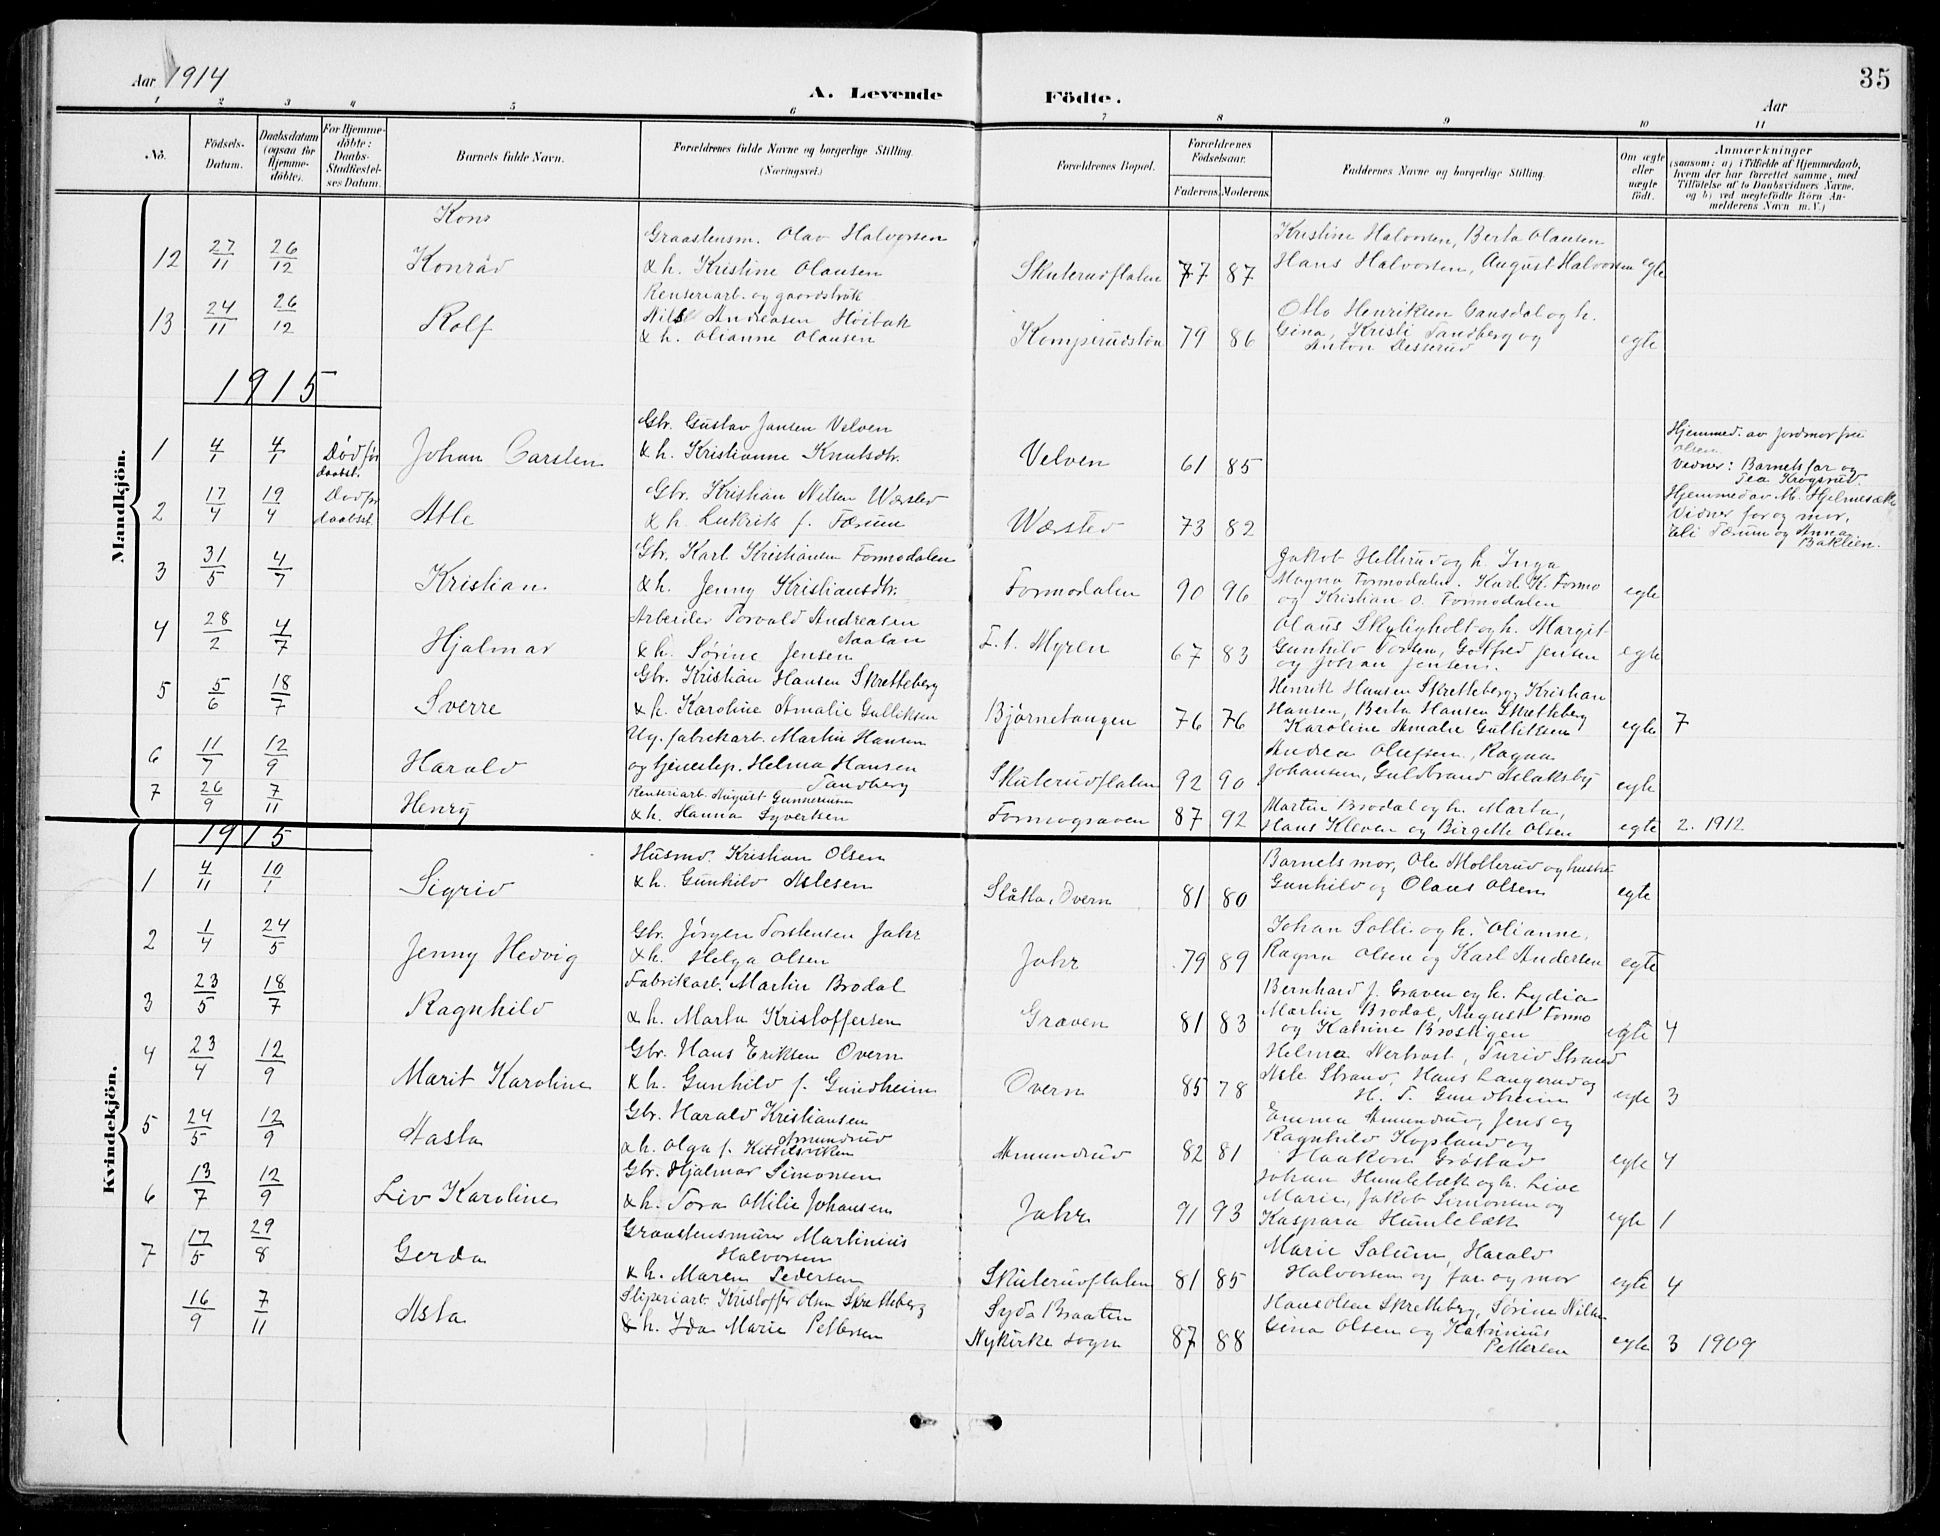 Aar 1914
A. Levende Födte.
Aar
35
1 2 3 4 5 6 7 8 9 10 11
No. Födsels-Datum. Daabsdatum (ogsaa for Hjemme-döbte). For Hjemme-döbte: Daabs-Stadfæstel-ses Datum. Barnets fulde Navn. Forældrenes fulde Navne og borgerlige Stilling. (Næringsvei.) Forældrenes Bopæl. Forældrenes Födselsaar. Faderens. Moderens. Faddernes Navne og borgerlige Stilling. Om ægte eller uægte födt. Anmærkninger (saasom: a) i Tilfælde af Hjemmedaab, hvem der har forrettet samme, med Tilföielse af to Daabsvidners Navne, og b) ved uægtefödte Börn An-melderens Navn m. V.)
Mandkjön.
Kons
12 27/11 26/12 Konrad Graastensm. Olav Halvorsen & h. Kristine Olausen Skuterudflaten 77 87 Kristine Halvorsen, Berta Olausen Hans Halvorsen, August Halvorsen egte
13 24/11 26/12 Rolf Renseriarb. og gaardsbruk Nils Andreasen Höibak & h. Olianne Olausen Komperudstön 79 86 Otto Henriksen Cansdal og h. Gina, Kristi Sandberg og Anton Desserud egte
1915
1 4/1 4/1 Död før daabst. Johan Carsten Gbr. Gustav Jansen Velven & h. Kristianne Knutsdtr. Velven 61 85 Hjemmed. av jordmor fru Olsen. Vidner: Barnets far og Tea Krogsrud.
2 17/4 19/4 Død før daabst. Atle Gbr. Kristian Nilsen Wærsted & h. Lukrits f. Færum Wærsted 73 82 Hjemmed av M. Hjelmesæth Vidner far og mor, Eli Færum og Anna Baklien.
3 31/5 4/7 Kristian Gbr. Karl Kristiansen Formodalen & h. Jenny Kristiansdtr. Formodalen 90 96 Jakob Hellerud og h. Inga Magna Formodalen. Karl K. Formo og Kristian O. Formodalen egte
4 28/2 4/7 Hjalmar Arbeider Torvald Andreasen Aaalan & h. Sørine Jensen E. 1. Myren 67 83 Olaus Skyligholt og h. Margit Gunhild Torsen, Gotfred Jensen og Johan Jensen. egte
5 5/6 18/7 Sverre Gbr. Kristian Hansen Skretteberg & h. Karoline Amalie Gulliksen Bjørnetangen 76 76 Henrik Hansen Skretteberg, Kristian Hansen, Berta Hansen Skretteberg Karoline Amalie Gulliksen egte 7
6 11/7 12/9 Harald Ug. fabrikarb. Martin Hansen og tjenestep. Helma Hansen Sandberg Skuterudflaten 92 90 Andrea Olufsen, Ragna Johansen, Guldbrand Aslaksby egte
7 26/9 7/11 Henry Renseriarb. August Gunnersen & h. Hanna Syvertsen Formograven 87 92 Martin Brodal og h. Marta, Hans Kleven og Birgitte Olsen egte 2. 1912
Kvindekjön.
1915
1 4/11 10/1 Sigrid Husmd. Kristian Olsen & h. Gunhild Aslesen Slåtta, Overn 81 80 Barnets mor, Ole Mollerud og hustru Gunhild og Olaus Olsen egte
2 1/4 24/5 Jenny Hedvig Gbr. Jørgen Torstensen Jahr & h. Helga Olsen Jahr 79 89 Johan Solli og h. Olianne, Ragna Olsen og Karl Andersen egte
3 23/5 18/7 Ragnhild Fabrikarb. Martin Brodal & h. Marta Kristoffersen Graven 81 83 Bernhard J. Graven og h. Lydia Martin Brodal, August Formo og Katrine Brostigen egte 4
4 23/4 12/9 Marit Karoline Gbr. Hans Eriksen Overn & h. Gunhild f. Gundheim Overn 85 78 Helma Nertrost, Turid Strand Asle Strand, Hans Langerud og H. T. Gundheim egte 3
5 24/5 12/9 Aasta Gbr. Harald Kristiansen Amundrud & h. Olga f. Kittilsviken Amundrud 82 81 Emma Amundrud, Jens og Ragnhild Kopland og Haakon Grøstad egte 4
6 13/7 12/9 Liv Karoline Gbr. Hjalmar Simonsen & h. Tora Otilie Johansen Jahr 91 93 Johan Humlebæk og h. Live Marie, Jakob Simonsen og Kaspara Humlebæk egte 1
7 17/5 29/8 Gerda Graastensmurer Martinius Halvorsen & h. Maren Pedersen Skuterudflaten 81 85 Marie Solum, Harald Halvorsen og far og mor egte 4
16/9 7/11 Asta Sliperiarb. Kristoffer Olsen Skretteberg & h. Ida Marie Pettersen Syda Braaten Nykirke sogn 87 88 Hans Olsen Skretteberg, Sørine Nilsen Gina Olsen og Katrinius Pettersen egte 3 1909